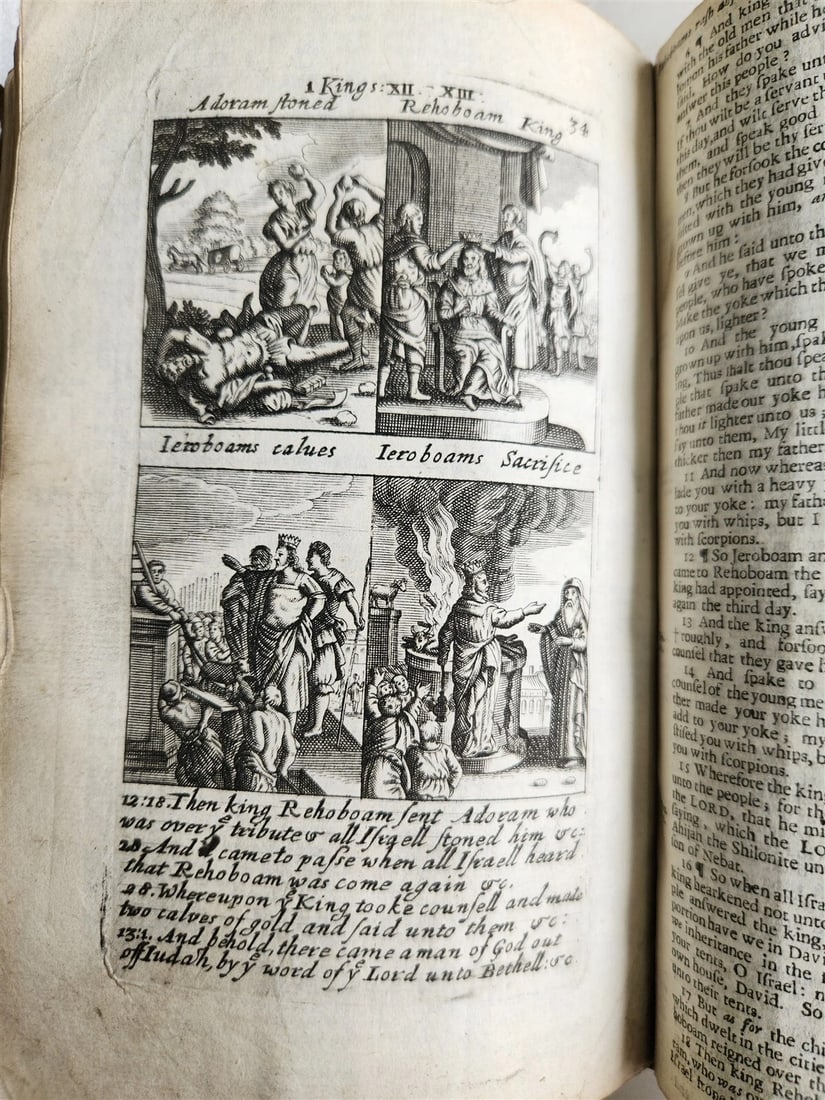 1 Kings: XII - XIII:
Adoram ſtoned Rehoboam King 34
Ieroboams calues Ieroboams Sacrifice
12:18. Then king Rehoboam ſent Adoram who
was over yͤ tribute & all Iſraell ſtoned him &c:
20. And came to paſſe when all Iſraell heard
that Rehoboam was come again &c.
28. Whereupon yͤ King tooke counſell and made
two calves of gold and ſaid unto them &c:
13:1. And behold, there came a man of God out
off Iudah, by yͤ word of yͤ Lord unto Bethell: &c
¶ And king
with the old men that
his father while he
How do you advi
anſwer this people?
And they ſpake unt
thou wilt be a ſervant
this day, and wilt ſerve
them, and ſpeak good
then they will be thy ſer
But he forſook the co
men, which they had give
with the young
grown up with him, an
before him:
And he ſaid unto th
give ye, that we m
people, who have ſpoke
Make the yoke which th
upon us, lighter?
10 And the young
grown up with him, ſpak
ing, Thus ſhalt thou ſpea
ple that ſpake unto th
father made our yoke h
thou it lighter unto us;
ſay unto them, My little
thicker then my father
11 And now whereas
lade you with a heavy
to your yoke: my fath
you with whips, but I
with ſcorpions.
12 ¶ So Jeroboam an
came to Rehoboam the
king had appointed, ſay
again the third day.
13 And the king anſw
† roughly, and forſoo
counſel that they gave h
14 And ſpake to
counſel of the young me
ther made your yoke h
add to your yoke; my
ſtiſed you with whips, b
you with ſcorpions.
15 Wherefore the king
unto the people; for th
the LORD, that he mi
ſaying, which the LO
Ahijah the Shilonite un
ſon of Nebat.
16 ¶ So when all Iſra
king hearkened not unto
ple anſwered the king,
portion have we in Davi
we inheritance in the
your tents, O Iſrael: n
own houſe, David. So
unto their tents.
17 But as for the chi
which dwelt in the citie
boboam reigned over th
18 Then king Rehob
ram, who was over
Iſrael